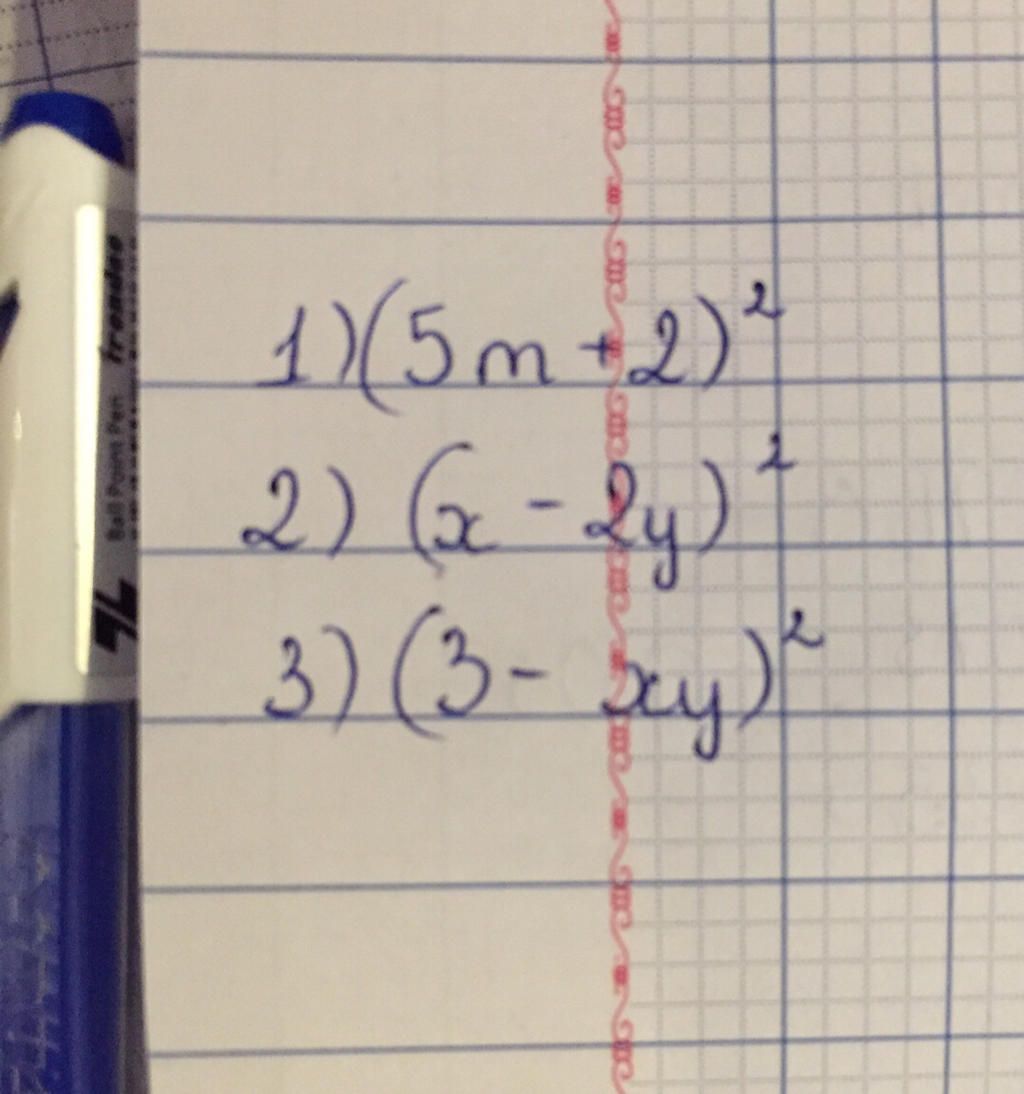 1) (5m + 2)²
2) (x - 2y)²
3) (3 - xy)²
Ball Point Pen trendee